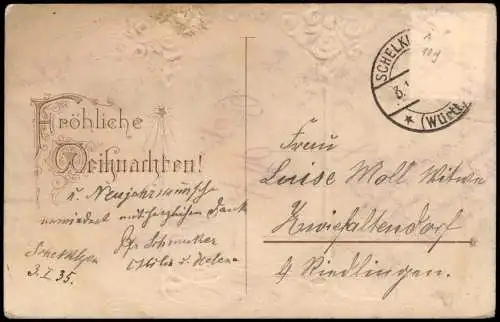 Fröhliche
Weihnachten!
u. Neujahrswünsche
erwiedert mit herzlichem Dank
Ottilie u. Helene
3. I. 35.
SCHELKL
3.1
(Württ.
10,-
Frau
Luise Moll Witwe
Zwiefaltendorf
b/ Riedlingen.